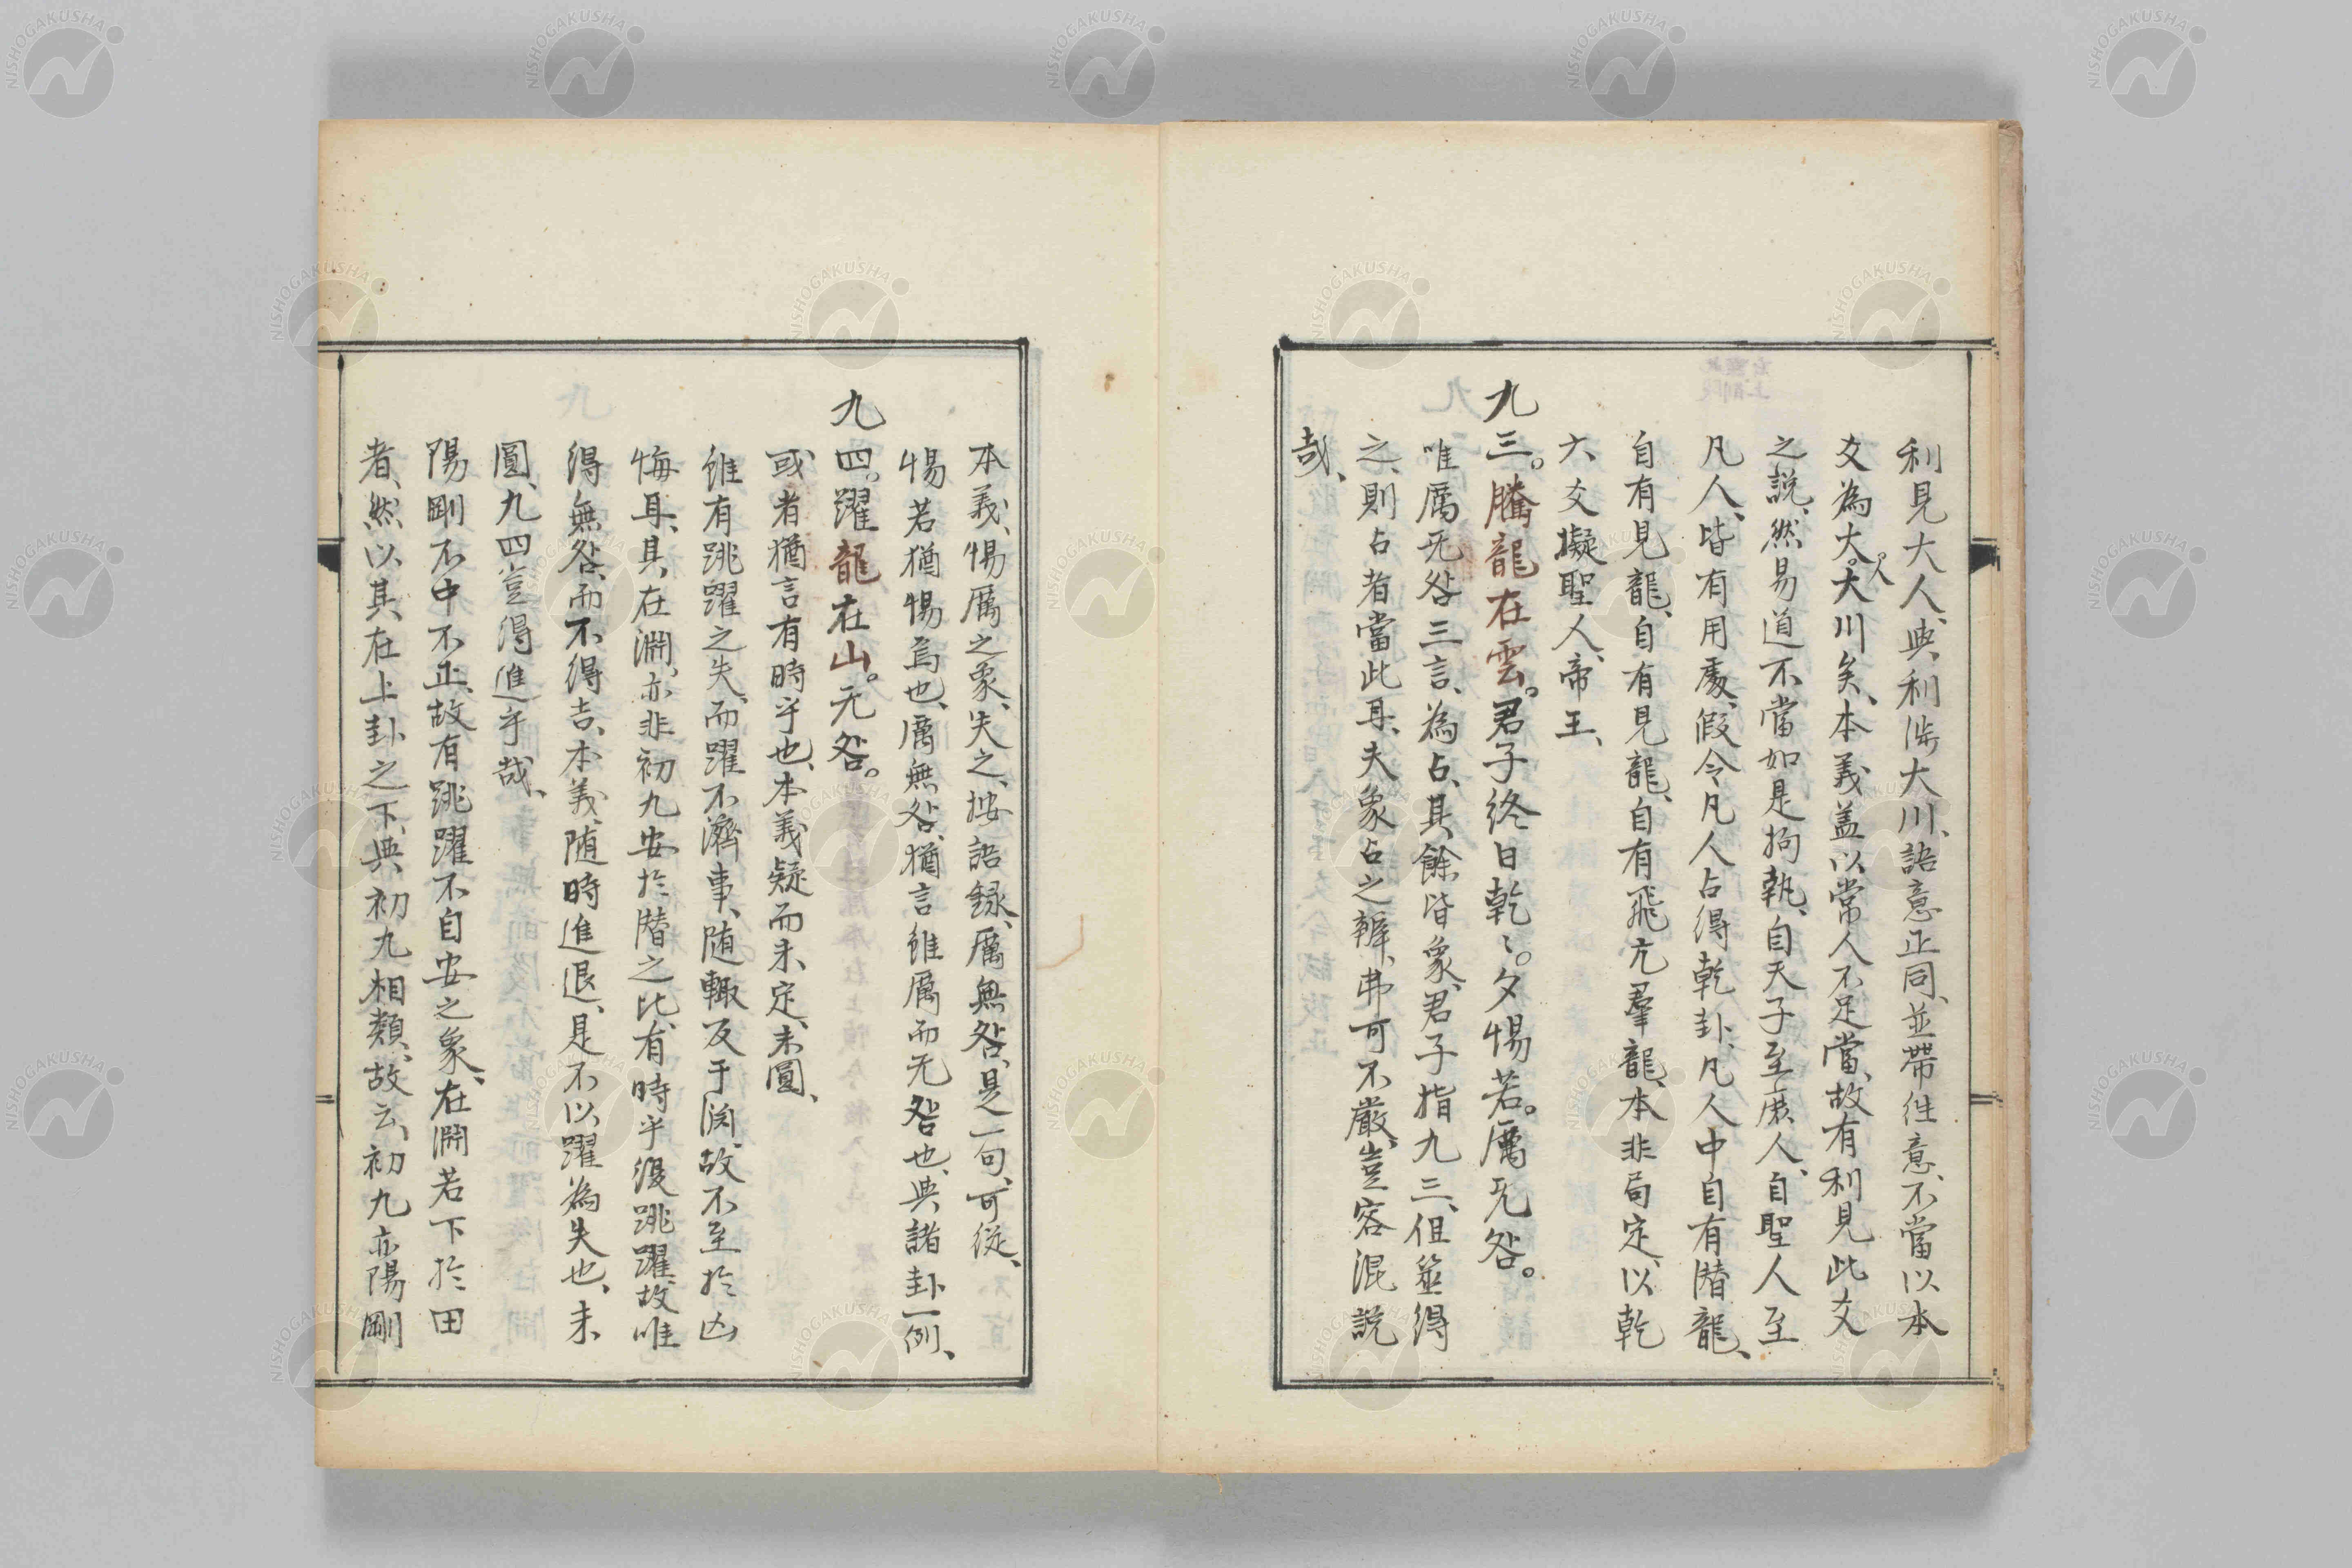 利見大人、典、利渉大川、語意正同、並帶件意、不當以本
爻為大人。大川矣、本義盖以常人不足當、故有利見此爻
之說、然易道不當如是拘執、自天子至庶人、自聖人至
凡人、皆有用處、假令凡人占得乾卦、凡人中自有潜龍、
自有見龍、自有見龍、自有飛亢羣龍、本非局定、以乾
六爻擬聖人、帝王、
九三。騰龍在雲。君子終日乾〻。夕惕若。厲无咎。
唯厲无咎三言、為占、其餘皆象、君子指九三、但筮得
之、則占者當此耳、夫象占之辨、弗可不嚴、豈容混説
哉、
本義、惕厲之象、失之、按語録、厲無咎、是一句、可從、
惕若猶惕焉也、厲無咎、猶言雖厲而无咎也、典諸卦一例、
九四。躍龍在山。无咎。
或者猶言有時乎也、本義疑而未定、未圓、
雖有跳躍之失、而躍不濟事、随輙反于渕、故不至於凶
悔耳、其在淵、亦非初九安於潜之比、有時乎復跳躍、故唯
得無咎、而不得吉、本義、随時進退、是不以躍為失也、未
圓、九四豈得進乎哉、
陽剛不中不正、故有跳躍不自安之象、在淵若下於田
者、然以其在上卦之下、典初九相類、故云、初九亦陽剛
NISHOGAKUSHA